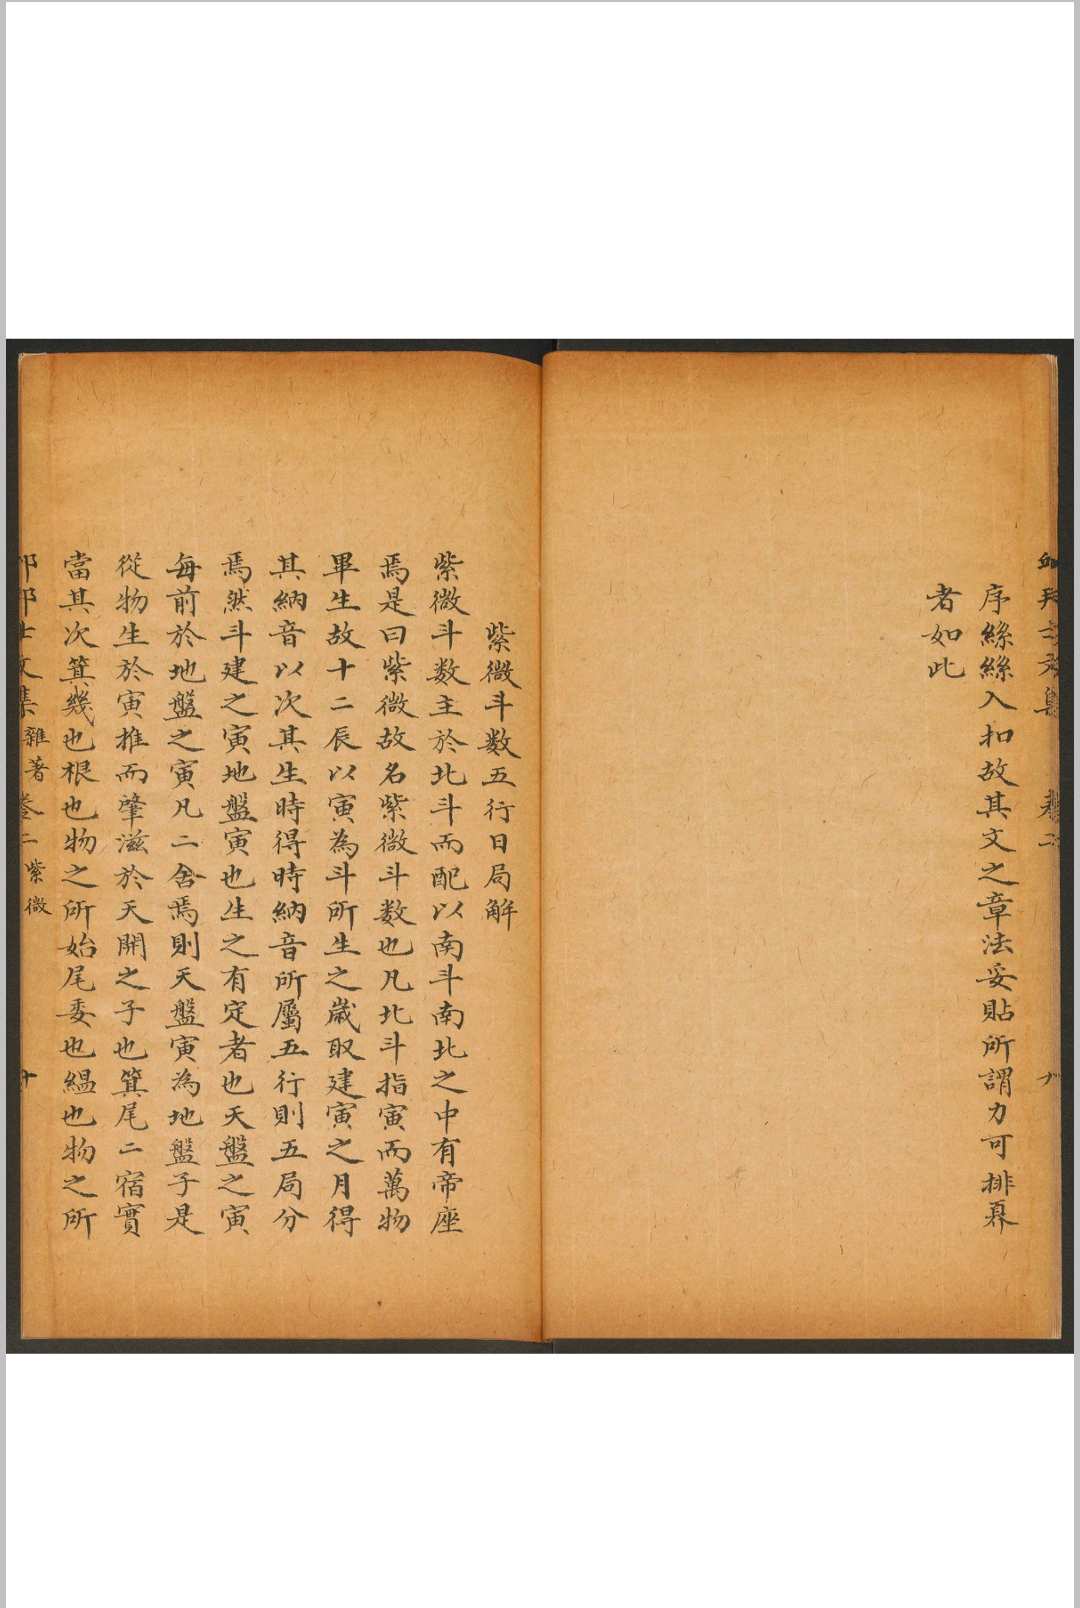 序絲絲入扣故其文之章法妥貼所謂力可排奡
者如此
紫微斗数五行日局解
紫微斗数主於北斗而配以南斗南北之中有帝座
焉是曰紫微故名紫微斗数也凡北斗指寅而萬物
畢生故十二辰以寅為斗所生之歳取建寅之月得
其納音以次其生時得時納音所屬五行則五局分
焉然斗建之寅地盤寅也生之有定者也天盤之寅
每前於地盤之寅凡二舍焉則天盤寅為地盤子是
從物生於寅推而肇滋於天開之子也箕尾二宿實
當其次箕幾也根也物之所始尾委也緼也物之所
文集雜著卷二紫微 十